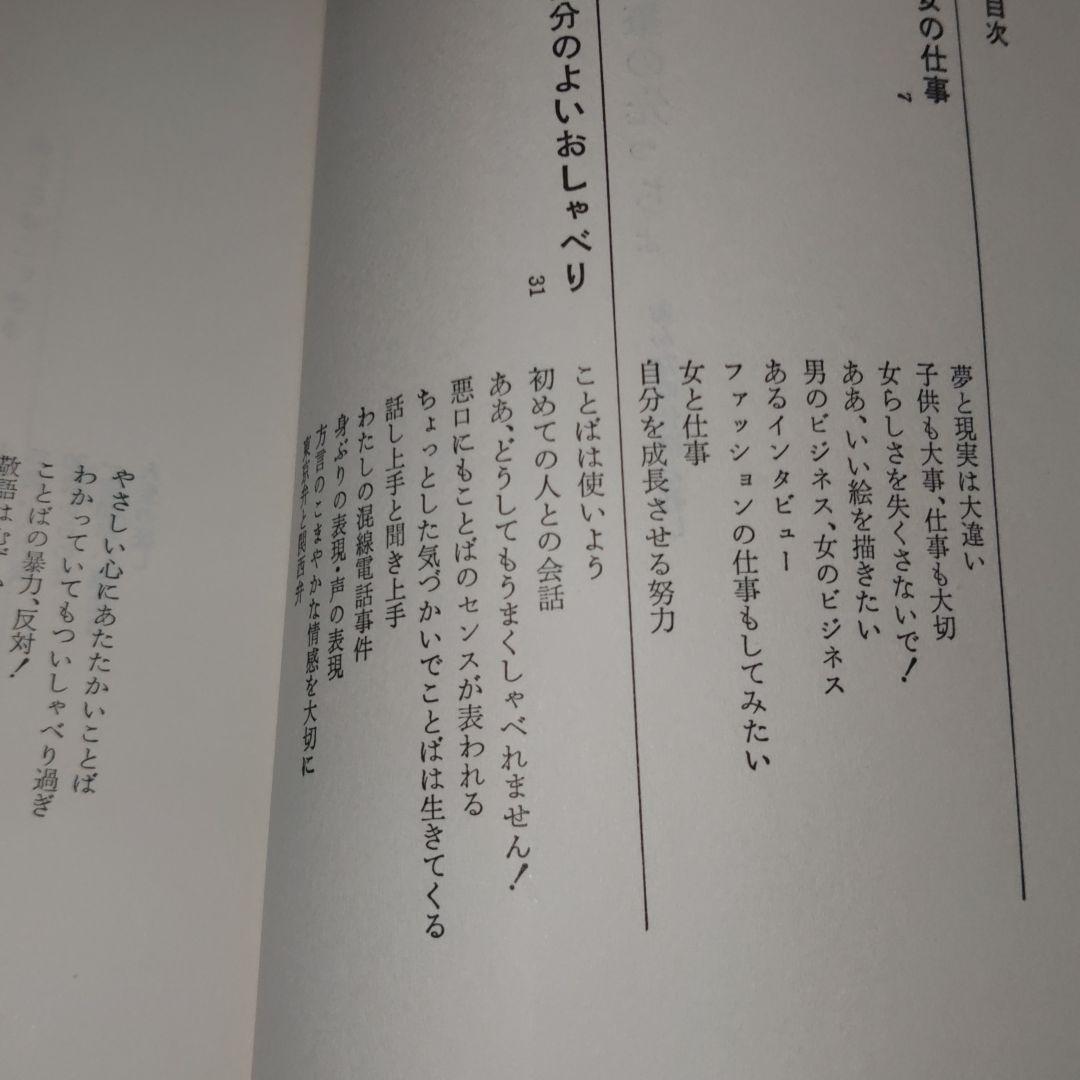 目次
女の仕事
7
夢と現実は大違い
子供も大事、仕事も大切
女らしさを失くさないで！
ああ、いい絵を描きたい
男のビジネス、女のビジネス
あるインタビュー
ファッションの仕事もしてみたい
女と仕事
自分を成長させる努力
分のよいおしゃべり
31
ことばは使いよう
初めての人との会話
ああ、どうしてもうまくしゃべれません！
悪口にもことばのセンスが表われる
ちょっとした気づかいでことばは生きてくる
話し上手と聞き上手
わたしの混線電話事件
身ぶりの表現・声の表現
方言のこまやかな情感を大切に
東京弁と関西弁
やさしい心にあたたかいことば
わかっていてもついしゃべり過ぎ
ことばの暴力、反対！
敬語は